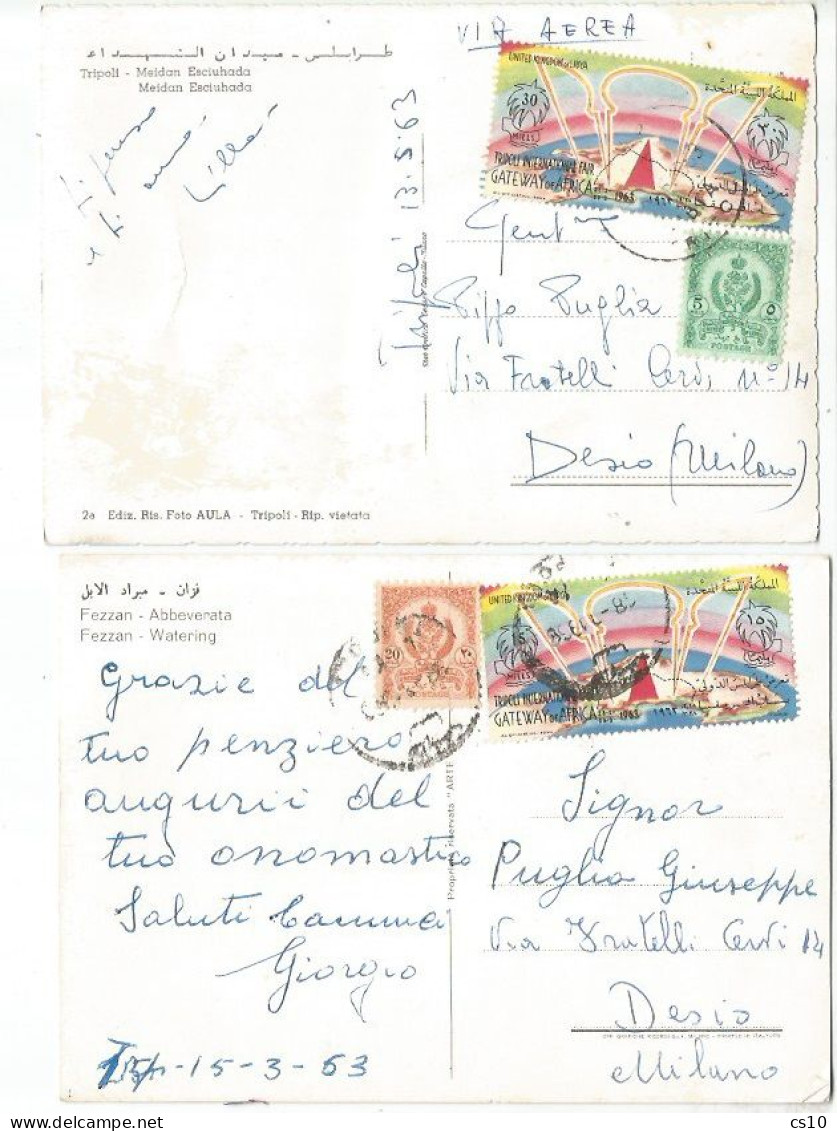 VIA AEREA
طرابلس - ميدان الشهداء
Tripoli - Meidan Esciuhada
Meidan Esciuhada
UNITED KINGDOM OF LIBYA
المملكة الليبية المتحدة
30
٣٠
MILLS
TRIPOLI INTERNATIONAL FAIR
GATEWAY OF AFRICA
1963 ١٩٦٣
Tripoli 13.5.63
5 ٥
POSTAGE
Gent
Pippo Puglia
Via Fratelli Cervi N° 14
Desio (Milano)
2a Ediz. Ris. Foto AULA - Tripoli - Rip. vietata
فزان - ميراد الابل
Fezzan - Abbeverata
Fezzan - Watering
20 ٢٠
POSTAGE
UNITED KINGDOM
المملكة الليبية المتحدة
١٥
MILLS
TRIPOLI INTERNATIONAL
GATEWAY OF AFRICA
1963 ١٩٦٣
Grazie del
tuo penziero
augurii del
tuo onomastico
Saluti
Giorgio
15-3-63
Proprietà riservata "ARTE
Signor
Puglia Giuseppe
Via Fratelli Cervi 14
Desio
Milano
cs10